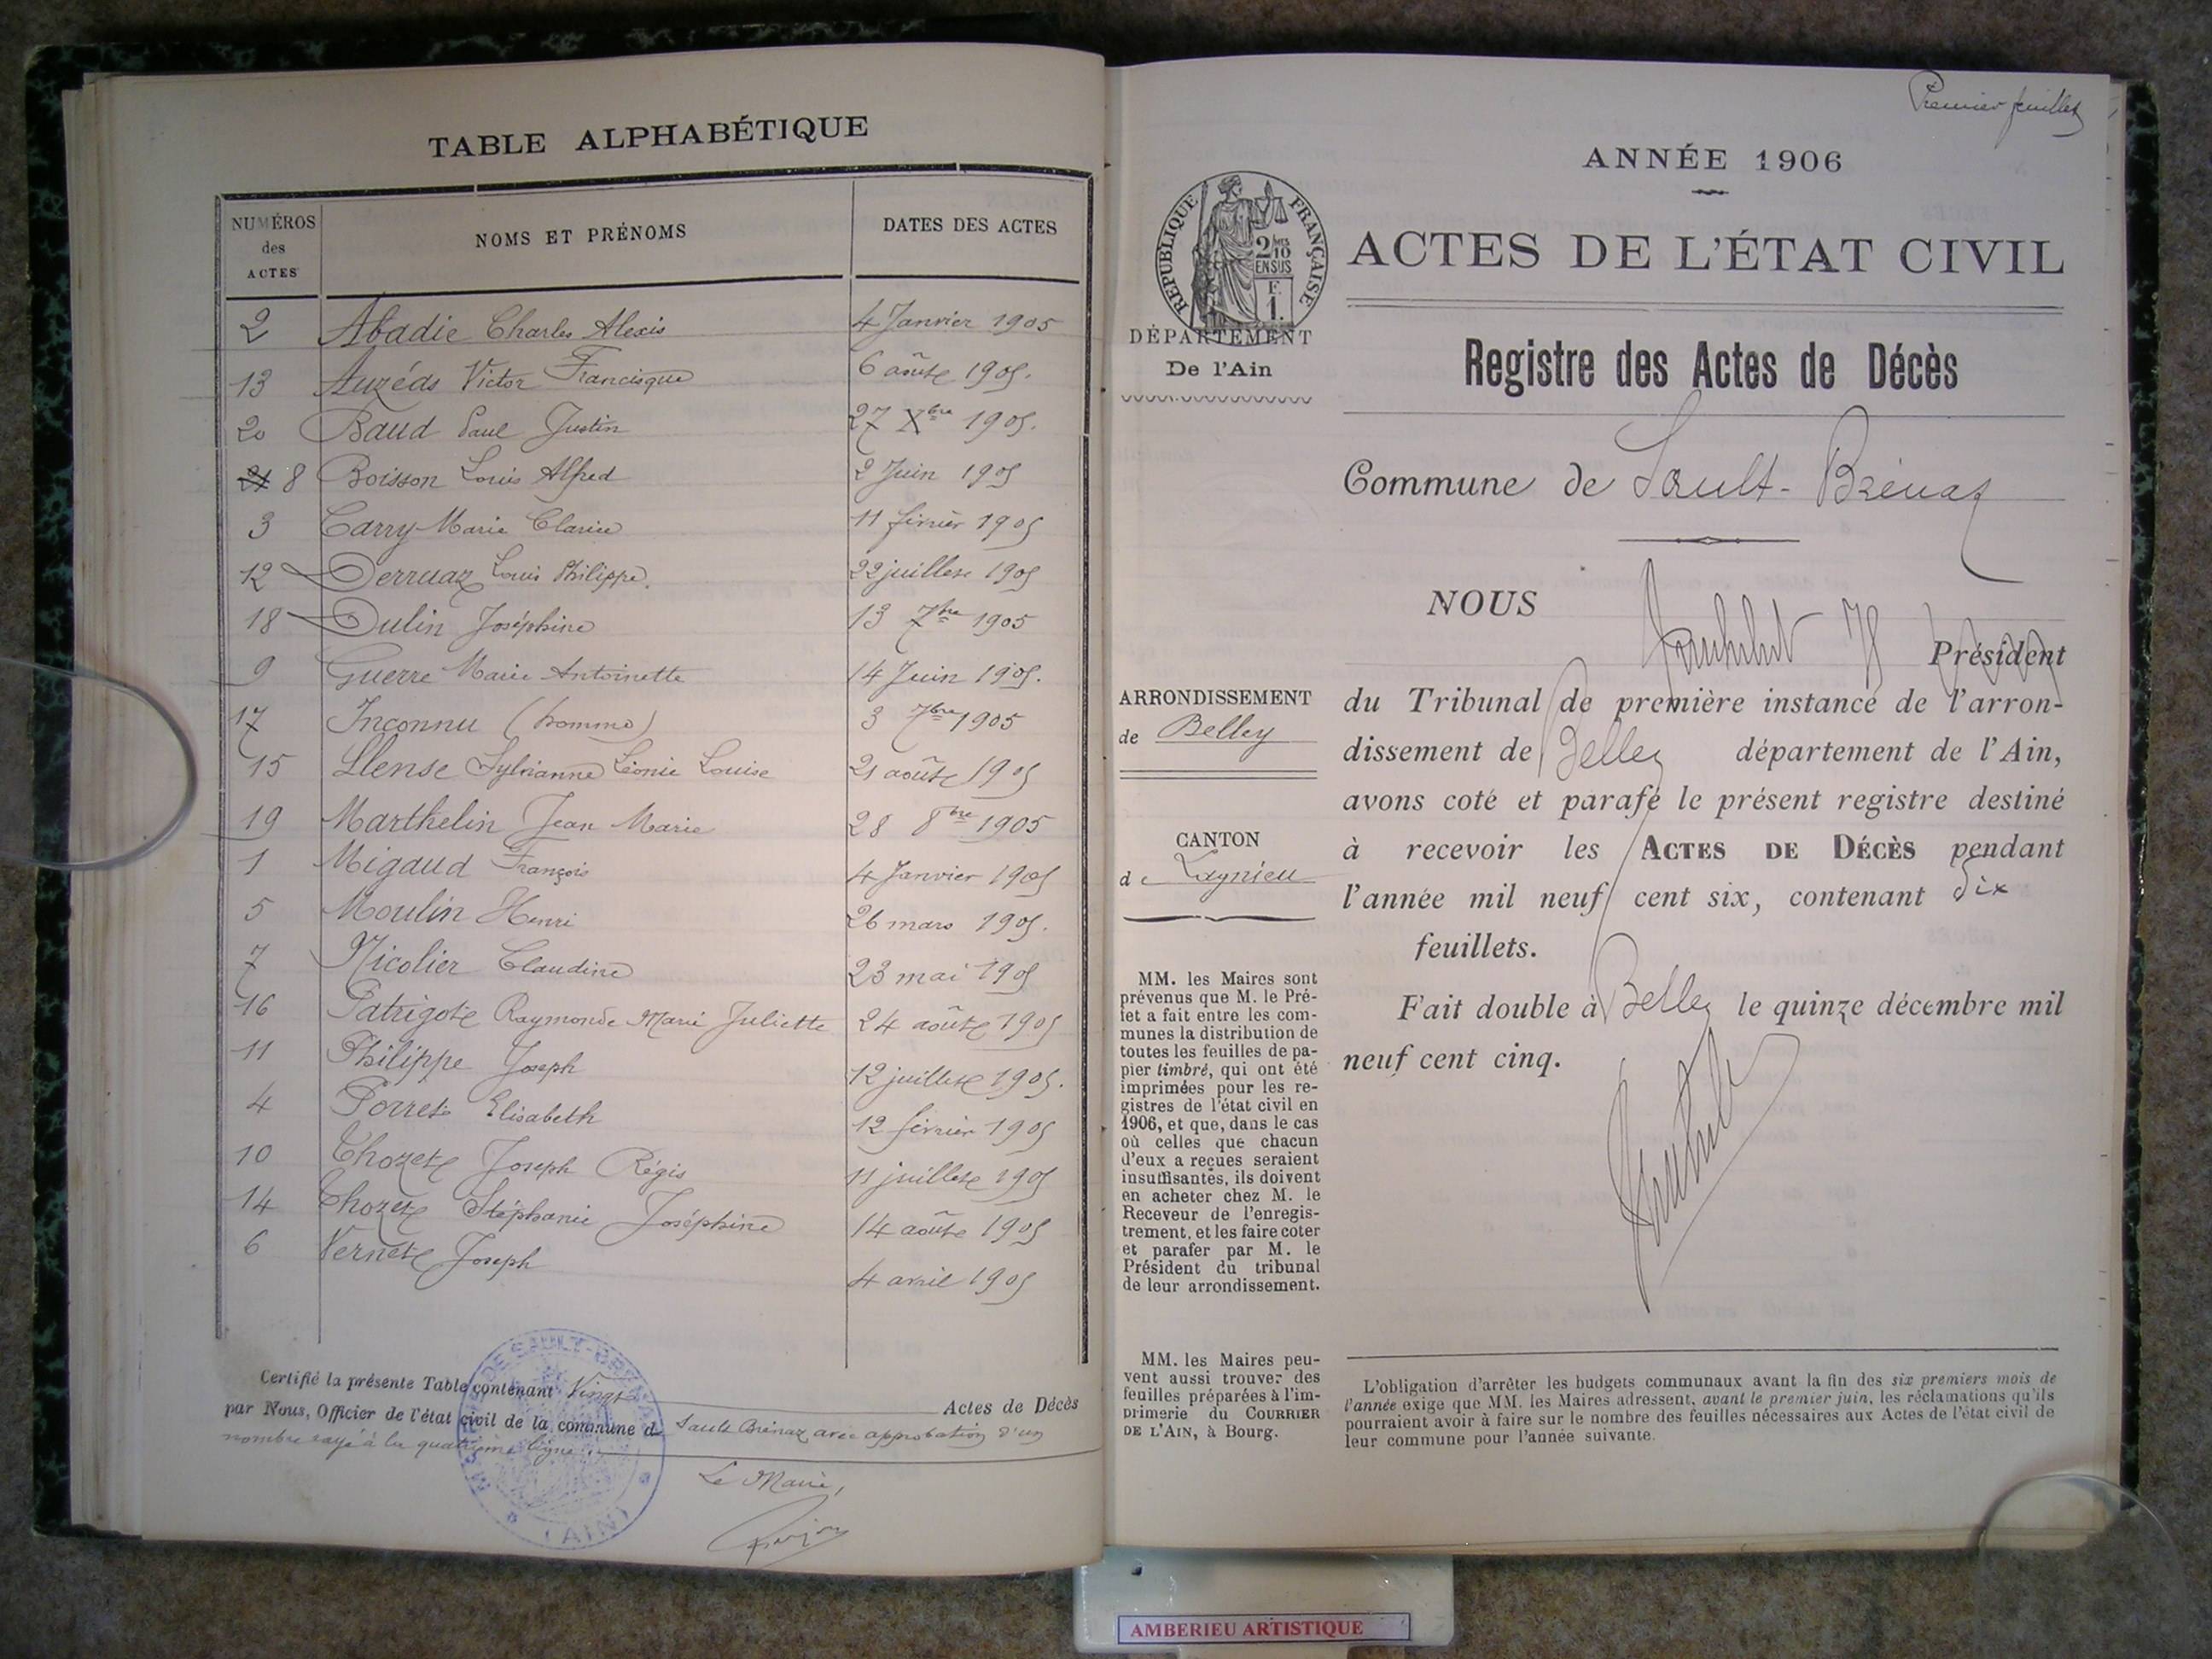 TABLE ALPHABÉTIQUE
NUMÉROS des ACTES NOMS ET PRÉNOMS DATES DES ACTES
2 Abadie Charles Alexis 4 Janvier 1905
13 Auzéds Victor Francisque 6 août 1905.
20 Baud Paul Justin 27 Xbre 1905.
21 8 Boisson Louis Alfred 2 Juin 1905
3 Carry Marie Clarice 11 février 1905
12 Derruaz Louis Philippe. 22 juillet 1905
18 Dulin Joséphine 13 7bre 1905
9 Guerre Marie Antoinette 14 Juin 1905.
17 Inconnu (homme) 3 7bre 1905
15 Llense Sylvianne Léonie Louise 21 août 1905
19 Marthelin Jean Marie 28 8bre 1905
1 Migaud François 4 Janvier 1905
5 Moulin Henri 26 mars 1905.
7 Nicolier Claudine 23 mai 1905
16 Patrigot Raymonde Marie Juliette 24 août 1905
11 Philippe Joseph 12 juillet 1905.
4 Porret Elisabeth 12 février 1905
10 Thozet Joseph Régis 11 juillet 1905
14 Thozet Stéphanie Joséphine 14 août 1905
6 Vernet Joseph 4 avril 1905
Certifié la présente Table contenant Vingt Actes de Décès
par Nous, Officier de l'état civil de la commune d Sault Brénaz, avec approbation d'un
nombre rayé à la quatrième ligne.
Le Maire,
MAIRIE DE SAULT-BRÉNAZ
(AIN)
Premier feuillet
ANNÉE 1906
ACTES DE L'ÉTAT CIVIL
RÉPUBLIQUE FRANÇAISE
2/10
EN SUS
F.
1.
DÉPARTEMENT
De l'Ain
Registre des Actes de Décès
Commune de Sault-Brénaz
NOUS
Président
du Tribunal de première instance de l'arron-
dissement de Belley département de l'Ain,
avons coté et parafé le présent registre destiné
à recevoir les ACTES DE DÉCÈS pendant
l'année mil neuf cent six, contenant Dix
feuillets.
Fait double à Belley le quinze décembre mil
neuf cent cinq.
ARRONDISSEMENT
de Belley
CANTON
de Lagnieu
MM. les Maires sont
prévenus que M. le Pré-
fet a fait entre les com-
munes la distribution de
toutes les feuilles de pa-
pier timbré, qui ont été
imprimées pour les re-
gistres de l'état civil en
1906, et que, dans le cas
où celles que chacun
d'eux a reçues seraient
insuffisantes, ils doivent
en acheter chez M. le
Receveur de l'enregis-
trement, et les faire coter
et parafer par M. le
Président du tribunal
de leur arrondissement.
MM. les Maires peu-
vent aussi trouver des
feuilles préparées à l'im-
primerie du COURRIER
DE L'AIN, à Bourg.
L'obligation d'arrêter les budgets communaux avant la fin des six premiers mois de
l'année exige que MM. les Maires adressent, avant le premier juin, les réclamations qu'ils
pourraient avoir à faire sur le nombre des feuilles nécessaires aux Actes de l'état civil de
leur commune pour l'année suivante.
AMBERIEU ARTISTIQUE